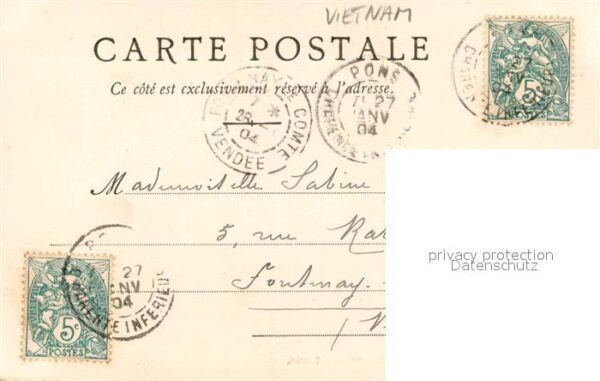 VIETNAM
CARTE POSTALE
Ce côté est exclusivement réservé à l'adresse.
PONS
27
JANV
04
CHARENTE INFRE
FONTENAY LE COMTE
7
28
04
VENDÉE
5c
POSTES
Mademoiselle Sabine
5, rue
Fontenay
27
04
CHARENTE INFERIEURE
5c
POSTES
privacy protection
Datenschutz